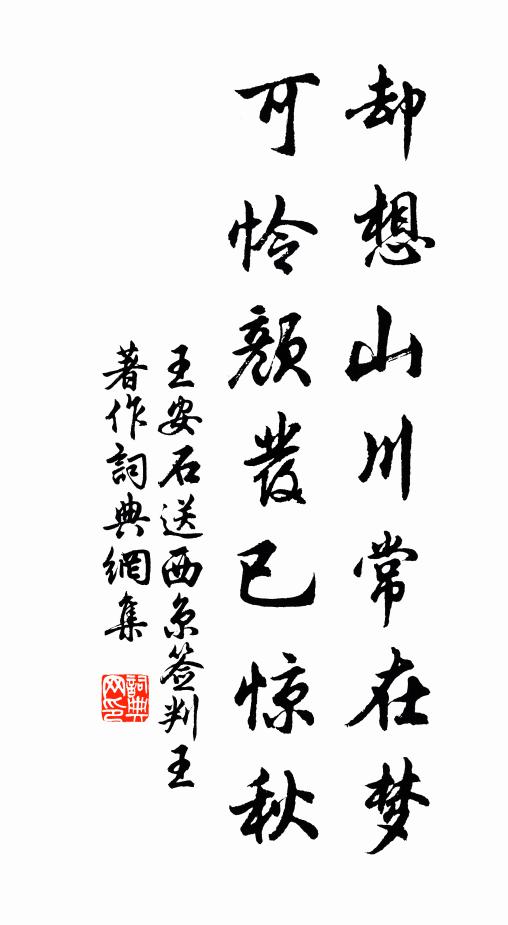 却想山川常在梦
可怜颜发已惊秋
王安石送西京签判王
著作詞典網集
詞典网印